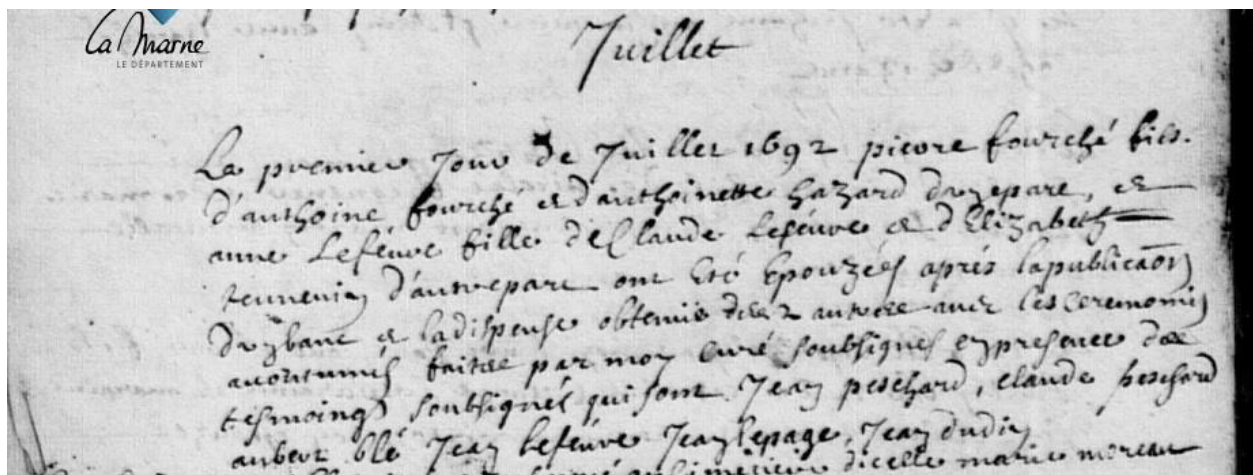 La Marne
LE DÉPARTEMENT
Juillet
Le premier Jour de Juillet 1692 pierre fourché fils
d'anthoine fourché et d'anthoinette hazard d'une part, et
anne Lefeuvre fille de Claude Lefeuvre et d'Elizabeth
d'autre part ont eté Epouzés aprés la publicaon
d'un banc et la dispense obtenue des 2 autres avec les ceremonies
acoutumés faites par moy curé soubsigné en presence des
tesmoings soubsignés qui sont Jean peschard, claude peschard
aubert blé Jean Lefeuvre Jean lepage, Jean dudin
dicelle marie moreau